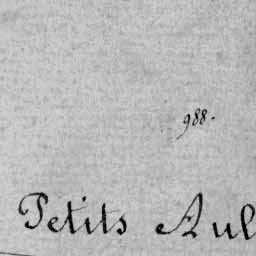 988.
Petits Aul